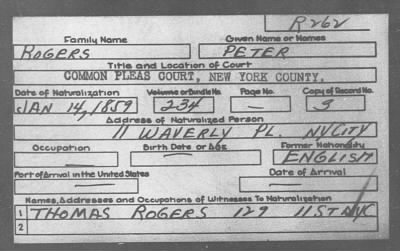 R262
Family Name Given Name or Names
ROGERS PETER
Title and Location of Court
COMMON PLEAS COURT, NEW YORK COUNTY.
Date of Naturalization Volume or Bundle No. Page No. Copy of Record No.
JAN 14, 1859 234 — 3
Address of Naturalized Person
11 WAVERLY PL. NYCITY
Occupation Birth Date or Age Former Nationality
— — ENGLISH
Port of Arrival in the United States Date of Arrival
— —
Names, Addresses and Occupations of Witnesses To Naturalization
1 THOMAS ROGERS 129 11 ST NYC
2